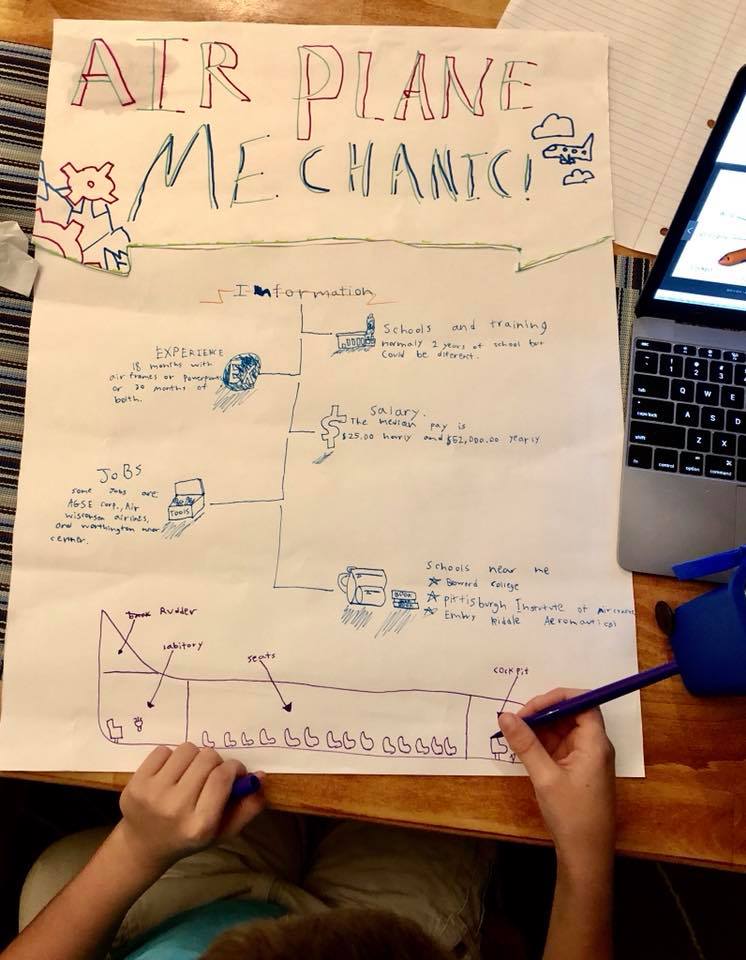 AIR PLANE
MECHANIC!
Information
Schools and training
normaly 2 years of school but
could be diferent.
EXPERIENCE
18 months with
air frames or
or 30 months of
both.
EX
Salary.
The median pay is
$25.00 horly and $52,000.00 yearly
JOBS
some jobs are
AGSE corp., Air
wisconson airlines,
and worthington
center.
TOOLS
Schools near me
Boward College
Pittisburgh Institute of
Embry Riddle Aeronautical
BOOK
Rudder
labitory
seats
cockpit
tab
caps lock
shift
fn
control
option
command
Q W E
A S D
Z X